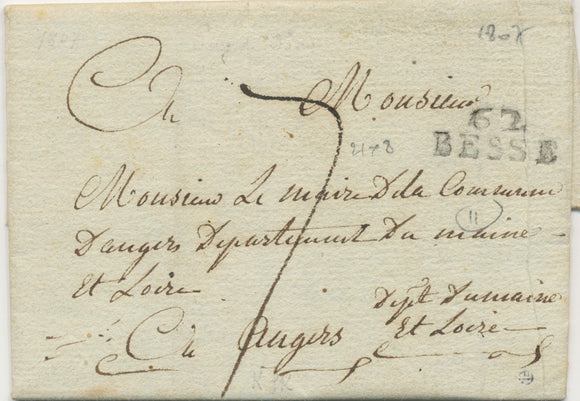 1807
1807
A Monsieur
62
BESSE
21x8
Monsieur Le maire Dela Commune
11
Dangers Departement Du maine
Et Loire
Dept Dumaine
Et Loire
A Angers
7